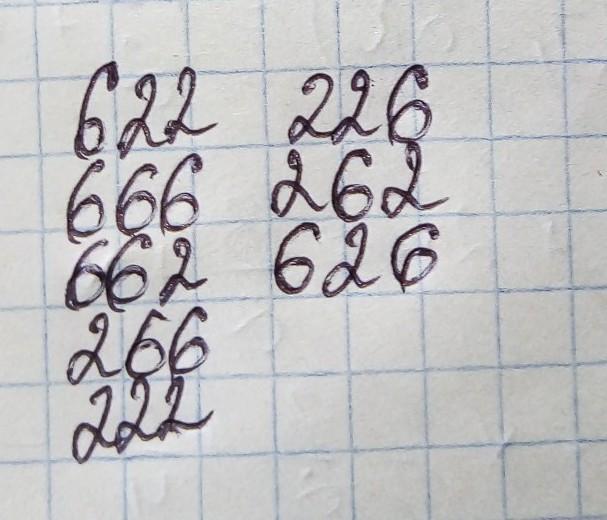 622 226
666 262
662 626
266
222